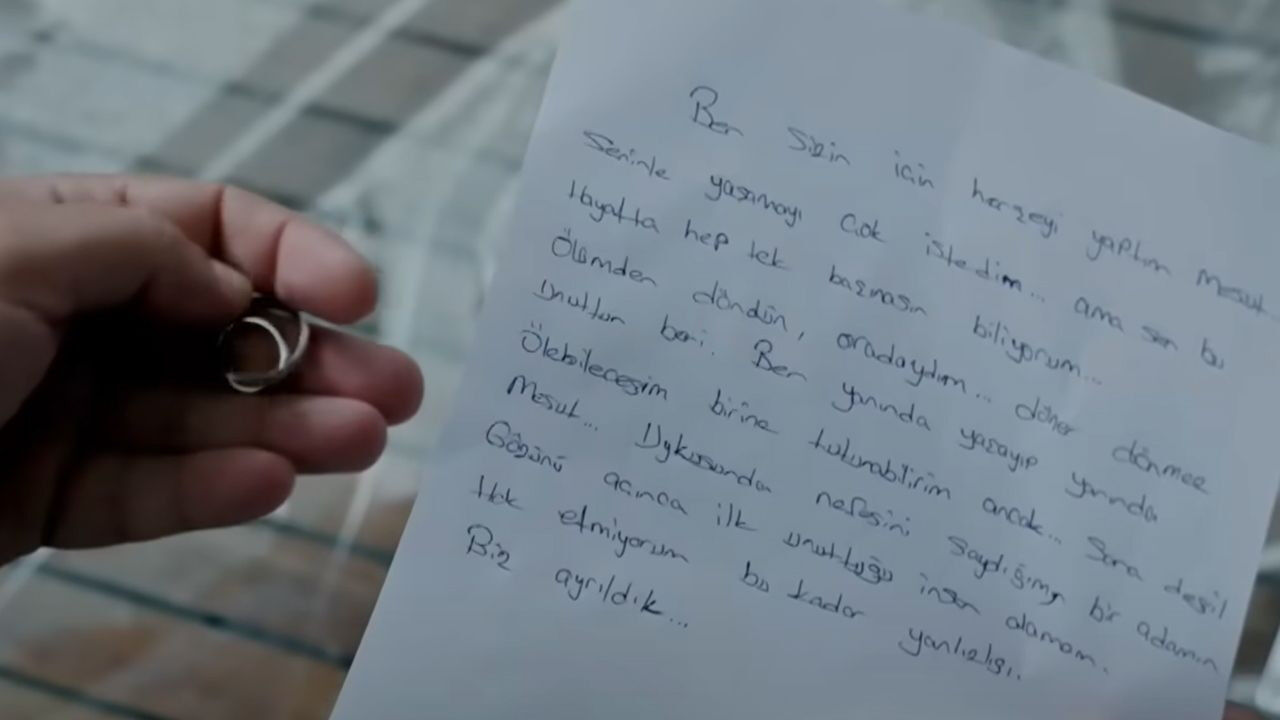 Ben sizin için herşeyi yaptım Mesut..
Seninle yaşamayı çok istedim... ama sen bu
Hayatta hep tek başınasın biliyorum...
Ölümden döndün, oradaydım... döner dönmez
Unuttun beni. Ben yanında yaşayıp yanında
Ölebileceğim birine tutunabilirim ancak... Sana değil
Mesut... Uykusunda nefesini saydığımız bir adamın
Gözünü açınca ilk unuttuğu insan olamam.
Hak etmiyorum bu kadar yanlızlığı.
Biz ayrıldık...